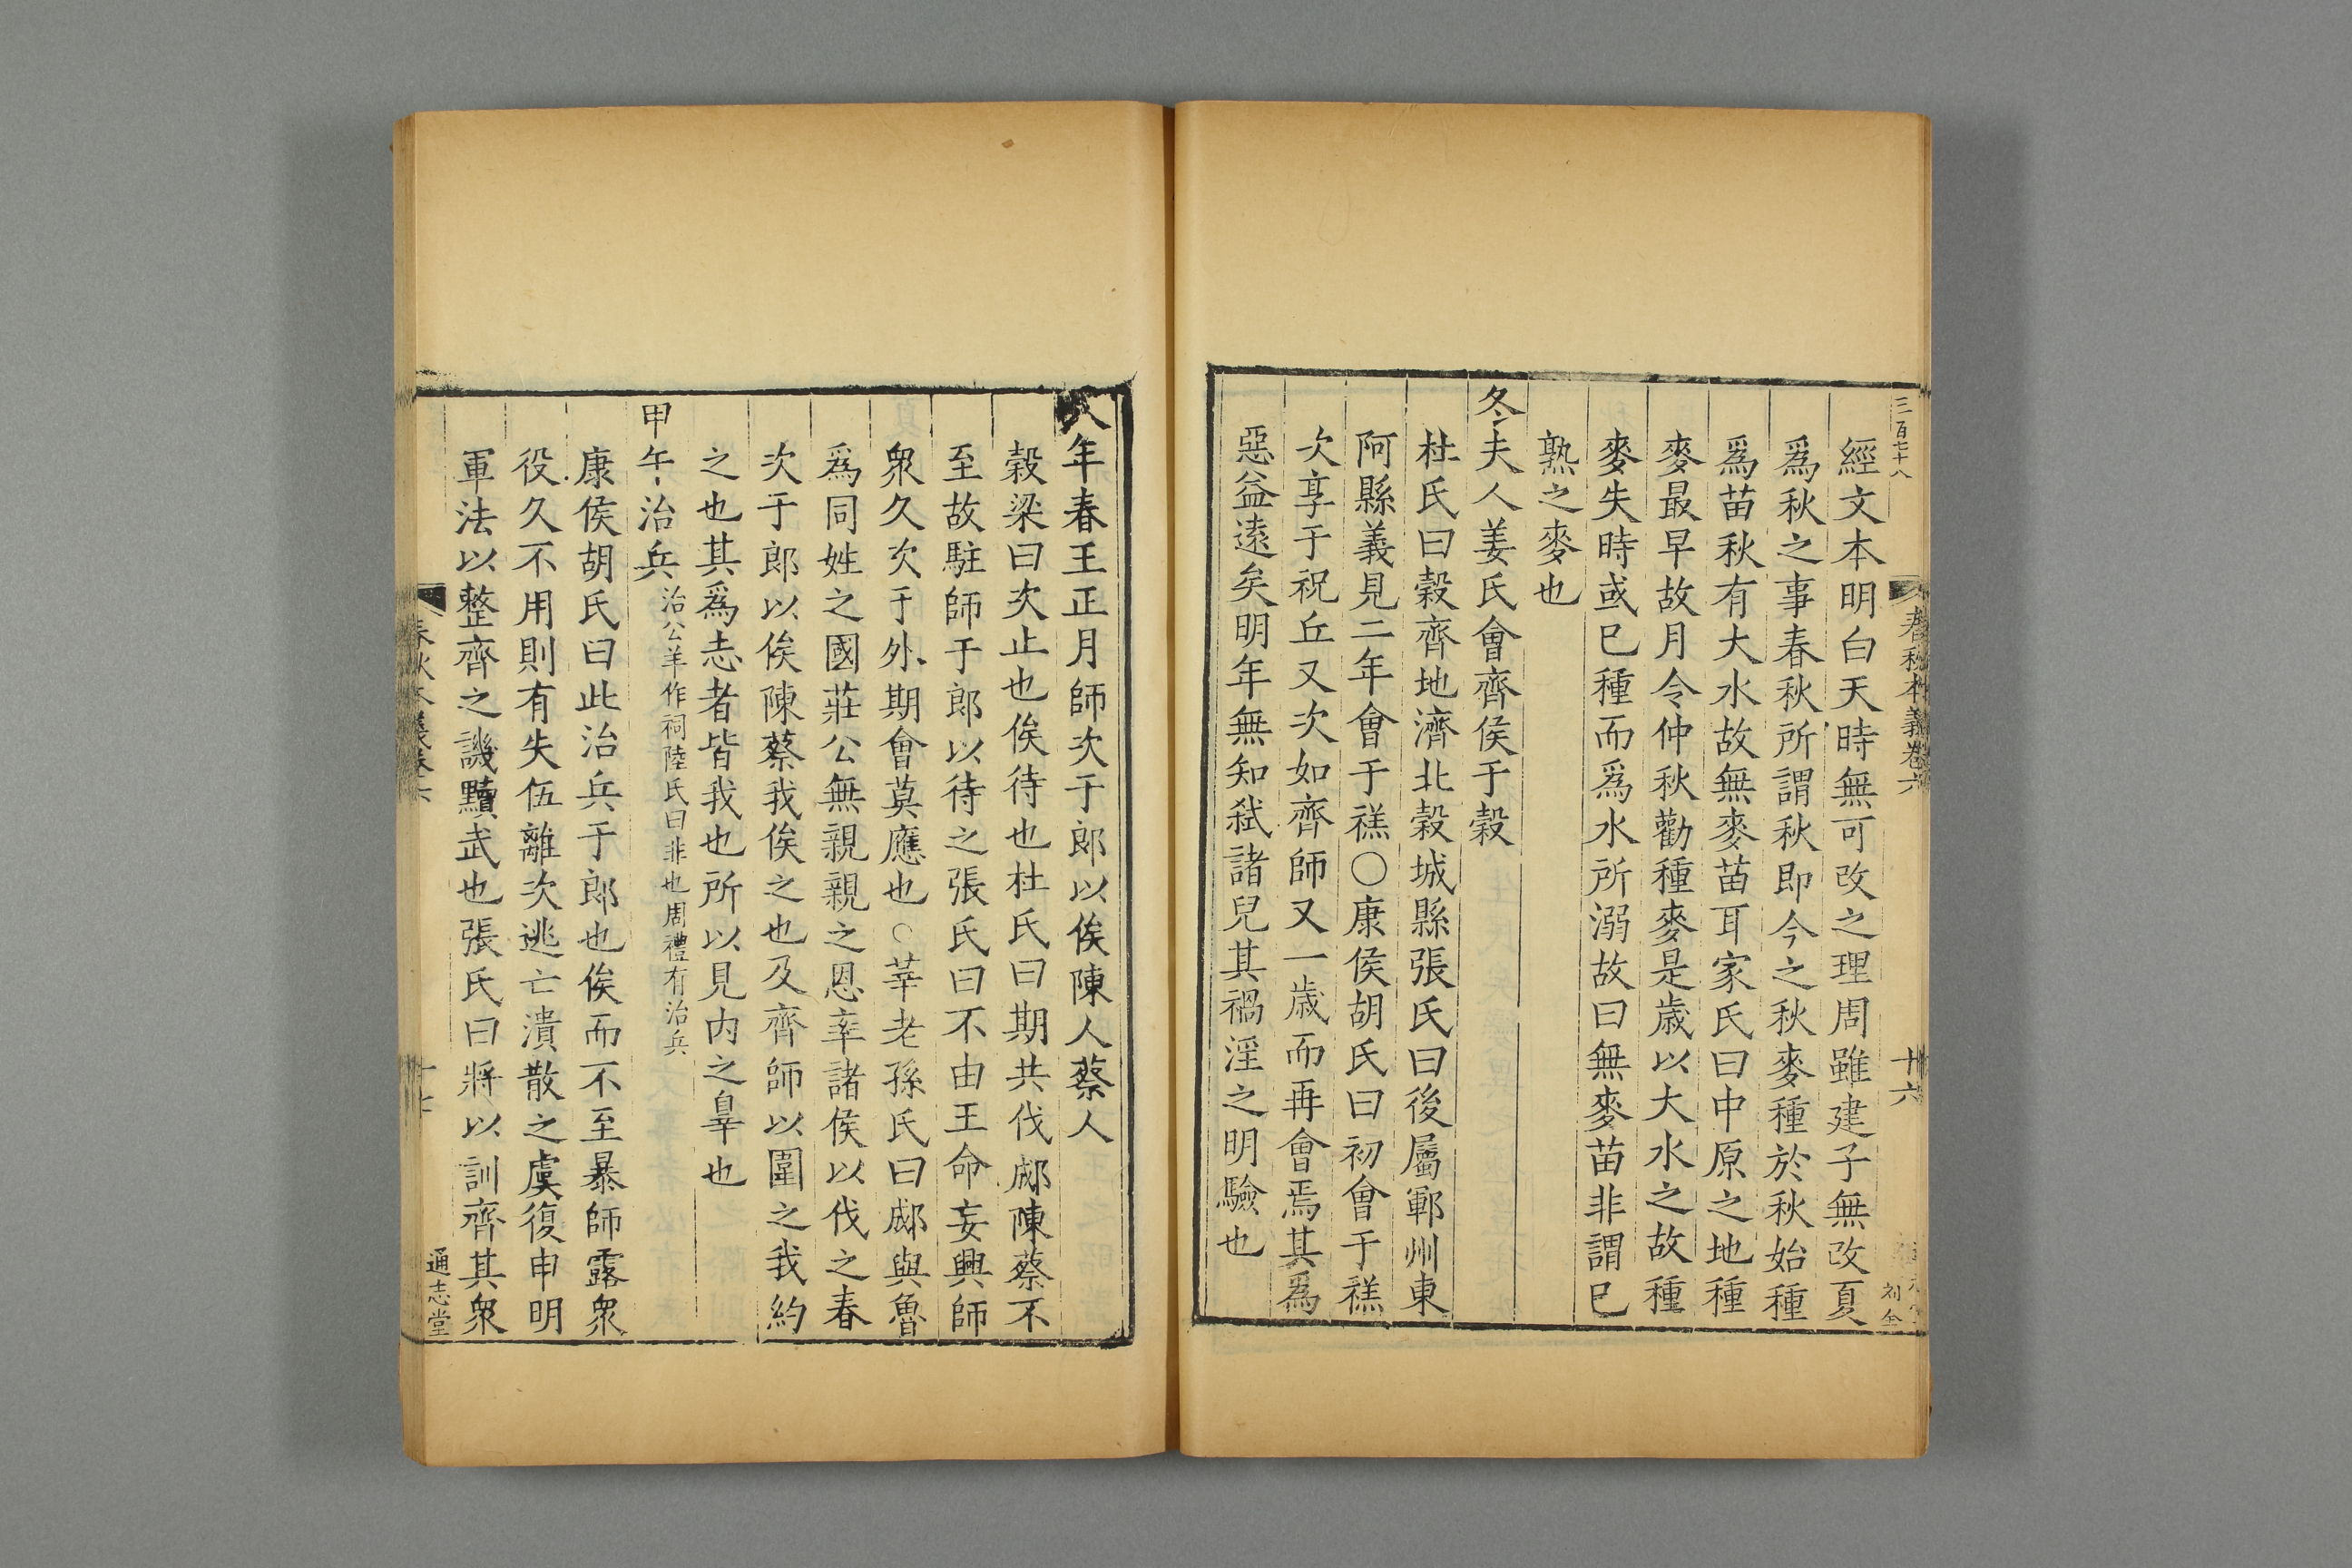 三百七十八
春秋本義卷六
十六
經文本明白天時無可改之理周雖建子無改夏
爲秋之事春秋所謂秋即今之秋麥種於秋始種
爲苗秋有大水故無麥苗耳家氏曰中原之地種
麥最早故月令仲秋勸種麥是歲以大水之故種
麥失時或巳種而爲水所溺故曰無麥苗非謂巳
熟之麥也
冬夫人姜氏會齊侯于穀
杜氏曰穀齊地濟北穀城縣張氏曰後屬鄆州東
阿縣義見二年會于禚〇康侯胡氏曰初會于禚
次享于祝丘又次如齊師又一歲而再會焉其爲
惡益遠矣明年無知弒諸兒其禍淫之明驗也
八年春王正月師次于郎以俟陳人蔡人
穀梁曰次止也俟待也杜氏曰期共伐郕陳蔡不
至故駐師于郎以待之張氏曰不由王命妄興師
衆久次于外期會莫應也〇莘老孫氏曰郕與魯
爲同姓之國莊公無親親之恩率諸侯以伐之春
次于郎以俟陳蔡我俟之也及齊師以圍之我約
之也其爲志者皆我也所以見内之辠也
甲午治兵治公羊作祠陸氏曰非也周禮有治兵
康侯胡氏曰此治兵于郎也俟而不至暴師露衆
役久不用則有失伍離次逃亡潰散之虞復申明
軍法以整齊之譏黷武也張氏曰將以訓齊其衆
春秋本義卷六
十七
通志堂